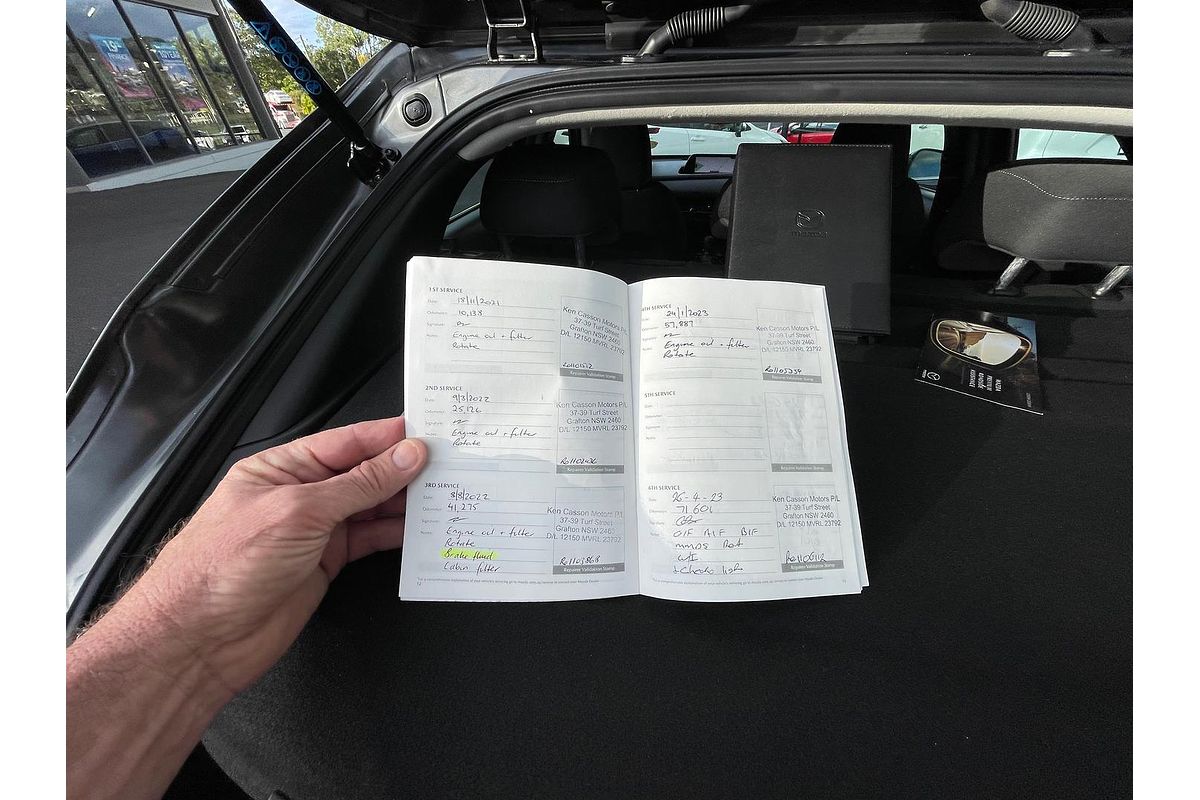 1ST SERVICE
Date: 18/11/2021
Odometer: 10,138
Signature:
Notes: Engine oil + filter
Rotate
Ken Casson Motors P/L
37-39 Turf Street
Grafton NSW 2460
D/L 12150 MVRL 23792
Repairer Validation Stamp
2ND SERVICE
Date: 9/3/2022
Odometer: 25,126
Signature:
Notes: Engine oil + filter
Rotate
Ken Casson Motors P/L
37-39 Turf Street
Grafton NSW 2460
D/L 12150 MVRL 23792
Repairer Validation Stamp
3RD SERVICE
Date: 8/8/2022
Odometer: 41,275
Signature:
Notes: Engine oil + filter
Rotate
Brake fluid
Cabin filter
Ken Casson Motors P/L
37-39 Turf Street
Grafton NSW 2460
D/L 12150 MVRL 23792
Repairer Validation Stamp
12
4TH SERVICE
Date: 24/1/2023
Odometer: 57,887
Signature:
Notes: Engine oil + filter
Rotate
Ken Casson Motors P/L
37-39 Turf Street
Grafton NSW 2460
D/L 12150 MVRL 23792
Repairer Validation Stamp
5TH SERVICE
Date:
Odometer:
Signature:
Notes:
Repairer Validation Stamp
6TH SERVICE
Date: 26-4-23
Odometer: 71601
Signature:
Notes: O/F A/F B/F
Ken Casson Motors P/L
37-39 Turf Street
Grafton NSW 2460
D/L 12150 MVRL 23792
Repairer Validation Stamp
13